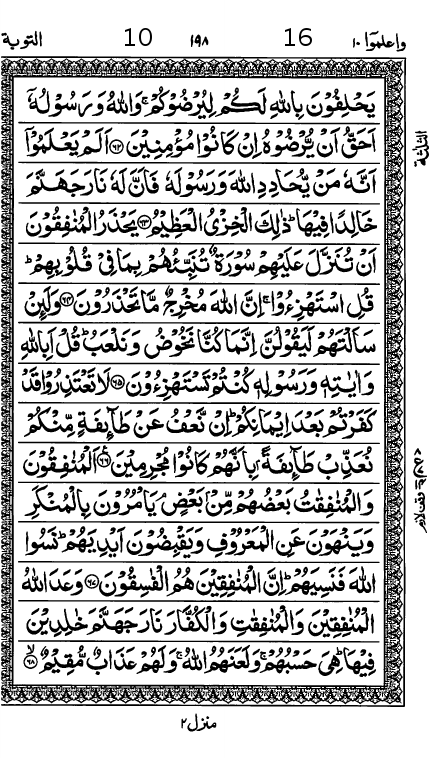 التوبة 10 ١٩٨ 16 واعلموا ١٠
يَحْلِفُوْنَ بِاللّٰهِ لَكُمْ لِيُرْضُوْكُمْ ۚ وَاللّٰهُ وَرَسُوْلُهٗۤ
اَحَقُّ اَنْ يُّرْضُوْهُ اِنْ كَانُوْا مُؤْمِنِيْنَ ﴿۶۲﴾ اَلَمْ يَعْلَمُوْۤا
اَنَّهٗ مَنْ يُّحَادِدِ اللّٰهَ وَرَسُوْلَهٗ فَاَنَّ لَهٗ نَارَ جَهَنَّمَ
خَالِدًا فِيْهَا ؕ ذٰلِكَ الْخِزْيُ الْعَظِيْمُ ﴿۶۳﴾ يَحْذَرُ الْمُنٰفِقُوْنَ
اَنْ تُنَزَّلَ عَلَيْهِمْ سُوْرَةٌ تُنَبِّئُهُمْ بِمَا فِيْ قُلُوْبِهِمْ ؕ
قُلِ اسْتَهْزِءُوْا ۚ اِنَّ اللّٰهَ مُخْرِجٌ مَّا تَحْذَرُوْنَ ﴿۶۴﴾ وَلَئِنْ
سَاَلْتَهُمْ لَيَقُوْلُنَّ اِنَّمَا كُنَّا نَخُوْضُ وَنَلْعَبُ ؕ قُلْ اَبِاللّٰهِ
وَاٰيٰتِهٖ وَرَسُوْلِهٖ كُنْتُمْ تَسْتَهْزِءُوْنَ ﴿۶۵﴾ لَا تَعْتَذِرُوْا قَدْ
كَفَرْتُمْ بَعْدَ اِيْمَانِكُمْ ؕ اِنْ نَّعْفُ عَنْ طَآئِفَةٍ مِّنْكُمْ
نُعَذِّبْ طَآئِفَةًۢ بِاَنَّهُمْ كَانُوْا مُجْرِمِيْنَ ﴿۶۶﴾ اَلْمُنٰفِقُوْنَ
وَالْمُنٰفِقٰتُ بَعْضُهُمْ مِّنْۢ بَعْضٍ ۘ يَاْمُرُوْنَ بِالْمُنْكَرِ
وَيَنْهَوْنَ عَنِ الْمَعْرُوْفِ وَيَقْبِضُوْنَ اَيْدِيَهُمْ ؕ نَسُوا
اللّٰهَ فَنَسِيَهُمْ ؕ اِنَّ الْمُنٰفِقِيْنَ هُمُ الْفٰسِقُوْنَ ﴿۶۷﴾ وَعَدَ اللّٰهُ
الْمُنٰفِقِيْنَ وَالْمُنٰفِقٰتِ وَالْكُفَّارَ نَارَ جَهَنَّمَ خٰلِدِيْنَ
فِيْهَا ؕ هِيَ حَسْبُهُمْ ۚ وَلَعَنَهُمُ اللّٰهُ ۚ وَلَهُمْ عَذَابٌ مُّقِيْمٌ ﴿۶۸﴾ۙ
منزل ٢